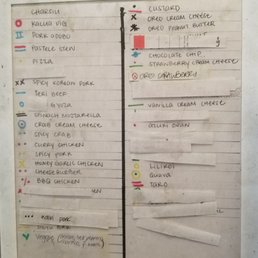 CHARSIU
KALUA PIG
PORK ADOBO
PASTELE STEW
PIZZA
SPICY KOREAN PORK
TERI BEEF
GYOZA
SPINACH MOZZARELLA
CRAB CREAM CHEESE
SPICY CRAB
CURRY CHICKEN
SPICY PORK
HONEY GARLIC CHICKEN
CHEESEBURGER
BBQ CHICKEN
PORK
VEGGIE
CUSTARD
OREO CREAM CHEESE
OREO PEANUT BUTTER
CHOCOLATE CHIP
STRAWBERRY CREAM CHEESE
OREO STRAWBERRY
VANILLA CREAM CHEESE
AZUKI BEAN
LILIKOI
GUAVA
TARO